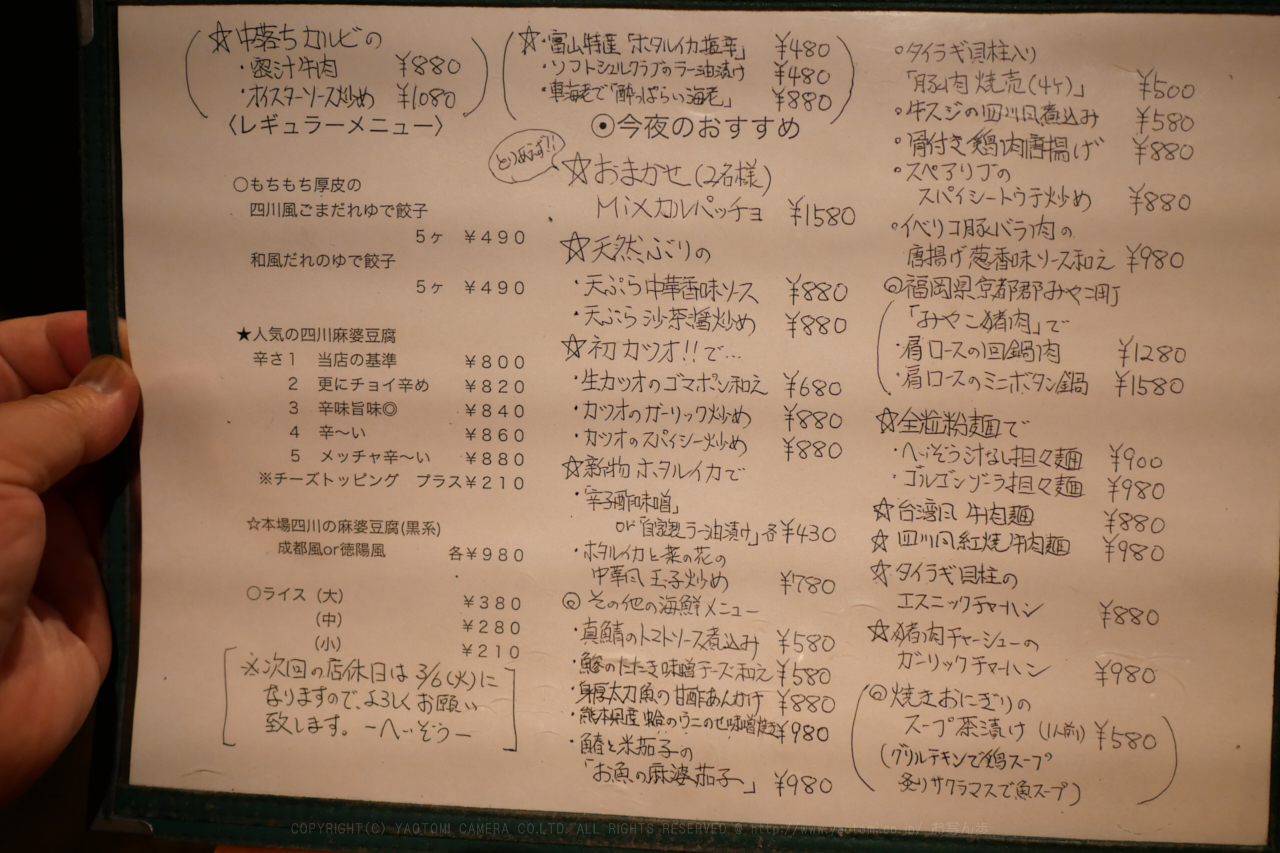 ☆中落ちカルビの
・蜜汁牛肉 ¥880
・オイスターソース炒め ¥1080
〈レギュラーメニュー〉
○もちもち厚皮の
四川風ごまだれゆで餃子
5ヶ ¥490
和風だれのゆで餃子
5ヶ ¥490
★人気の四川麻婆豆腐
辛さ1 当店の基準 ¥800
2 更にチョイ辛め ¥820
3 辛味旨味◎ ¥840
4 辛〜い ¥860
5 メッチャ辛〜い ¥880
※チーズトッピング プラス¥210
☆本場四川の麻婆豆腐(黒系)
成都風or徳陽風 各¥980
○ライス（大） ¥380
（中） ¥280
（小） ¥210
※次回の店休日は3/6(火)に
なりますので、よろしくお願い
致します。ーへいぞうー
☆・富山特産「ホタルイカ塩辛」 ¥480
・ソフトシェルクラブのラー油漬け ¥480
・車海老で「酔っぱらい海老」 ¥880
◉今夜のおすすめ
とりあえず!!
☆おまかせ(2名様)
Mixカルパッチョ ¥1580
☆天然ぶりの
・天ぷら中華香味ソース ¥880
・天ぷら沙茶醤炒め ¥880
☆初カツオ!!で…
・生カツオのゴマポン和え ¥680
・カツオのガーリック炒め ¥880
・カツオのスパイシー炒め ¥880
☆新物ホタルイカで
・「辛子酢味噌」
or「自家製ラー油漬け」各¥430
・ホタルイカと菜の花の
中華風玉子炒め ¥780
◎その他の海鮮メニュー
・真鯖のトマトソース煮込み ¥580
・鯵のたたき味噌チーズ和え ¥580
・身厚太刀魚の甘酢あんかけ ¥880
・熊本県産蛤のウニのせ味噌焼 ¥980
・鰆と米茄子の
「お魚の麻婆茄子」 ¥980
○タイラギ貝柱入り
「豚肉焼売(4ケ)」 ¥500
○牛スジの四川風煮込み ¥580
○骨付き鶏肉唐揚げ ¥880
○スペアリブの
スパイシートウチ炒め ¥880
○イベリコ豚バラ肉の
唐揚げ葱香味ソース和え ¥980
◎福岡県京都郡みやこ町
「みやこ猪肉」で
・肩ロースの回鍋肉 ¥1280
・肩ロースのミニボタン鍋 ¥1580
☆全粒粉麺で
・へいぞう汁なし担々麺 ¥900
・ゴルゴンゾーラ担々麺 ¥980
☆台湾風牛肉麺 ¥880
☆四川風紅焼牛肉麺 ¥980
☆タイラギ貝柱の
エスニックチャーハン ¥880
☆猪肉チャーシューの
ガーリックチャーハン ¥980
◎焼きおにぎりの
スープ茶漬け(1人前) ¥580
(グリルチキンで鶏スープ
炙りサクラマスで魚スープ)
COPYRIGHT(C) YAOTOMI CAMERA CO.LTD. ALL RIGHTS RESERVED @ http://www.yaotomi.co.jp/ お写ん歩